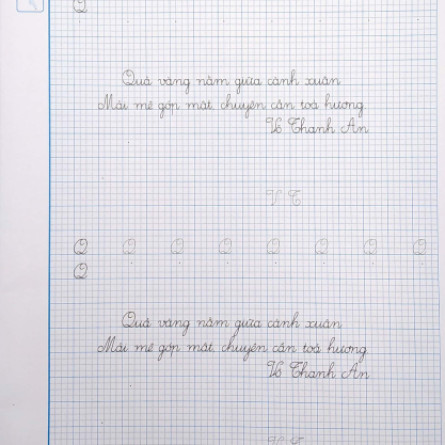 Q
Quả vàng nằm giữa cành xuân
Mải mê góp mật, chuyên cần toả hương
Võ Thanh An
V T
Q Q Q Q Q Q Q Q
Q
Quả vàng nằm giữa cành xuân
Mải mê góp mật, chuyên cần toả hương
Võ Thanh An